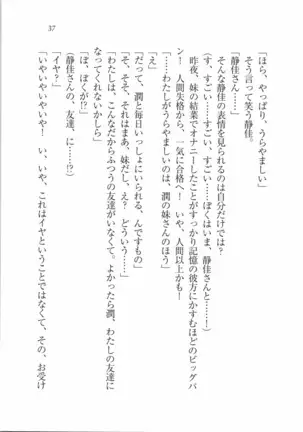 37
「ほら、やっぱり、うらやましい」
そう言って笑う静佳。
「静佳さん……」
そんな静佳の表情を見られるのは自分だけでは？
(す、すごい……すごい、すごい……ぼくはいま、静佳さんと……)
昨夜、妹の結菜でオナニーしたことがすっかり記憶の彼方にかすむほどのビッグバ
ン！　人間失格から、一気に合格へ！　いや、人間以上かも！
「……わたしがうらやましいのは、潤の妹さんのほう」
「え」
「だって、潤と毎日いっしょにいられる、んですもの」
「そ、そそ、それはまあ、妹だし。え？　どういう……」
「わたしは、こんなだからふつうの友達がいなくて。よかったら潤、わたしの友達に
なってくれないかしら」
「ぼ、ぼくが!?」
(静佳さんの、友達、に……!?)
「イヤ？」
「いやいやいやいや！　い、いや、これはイヤということではなくて、その、お受け